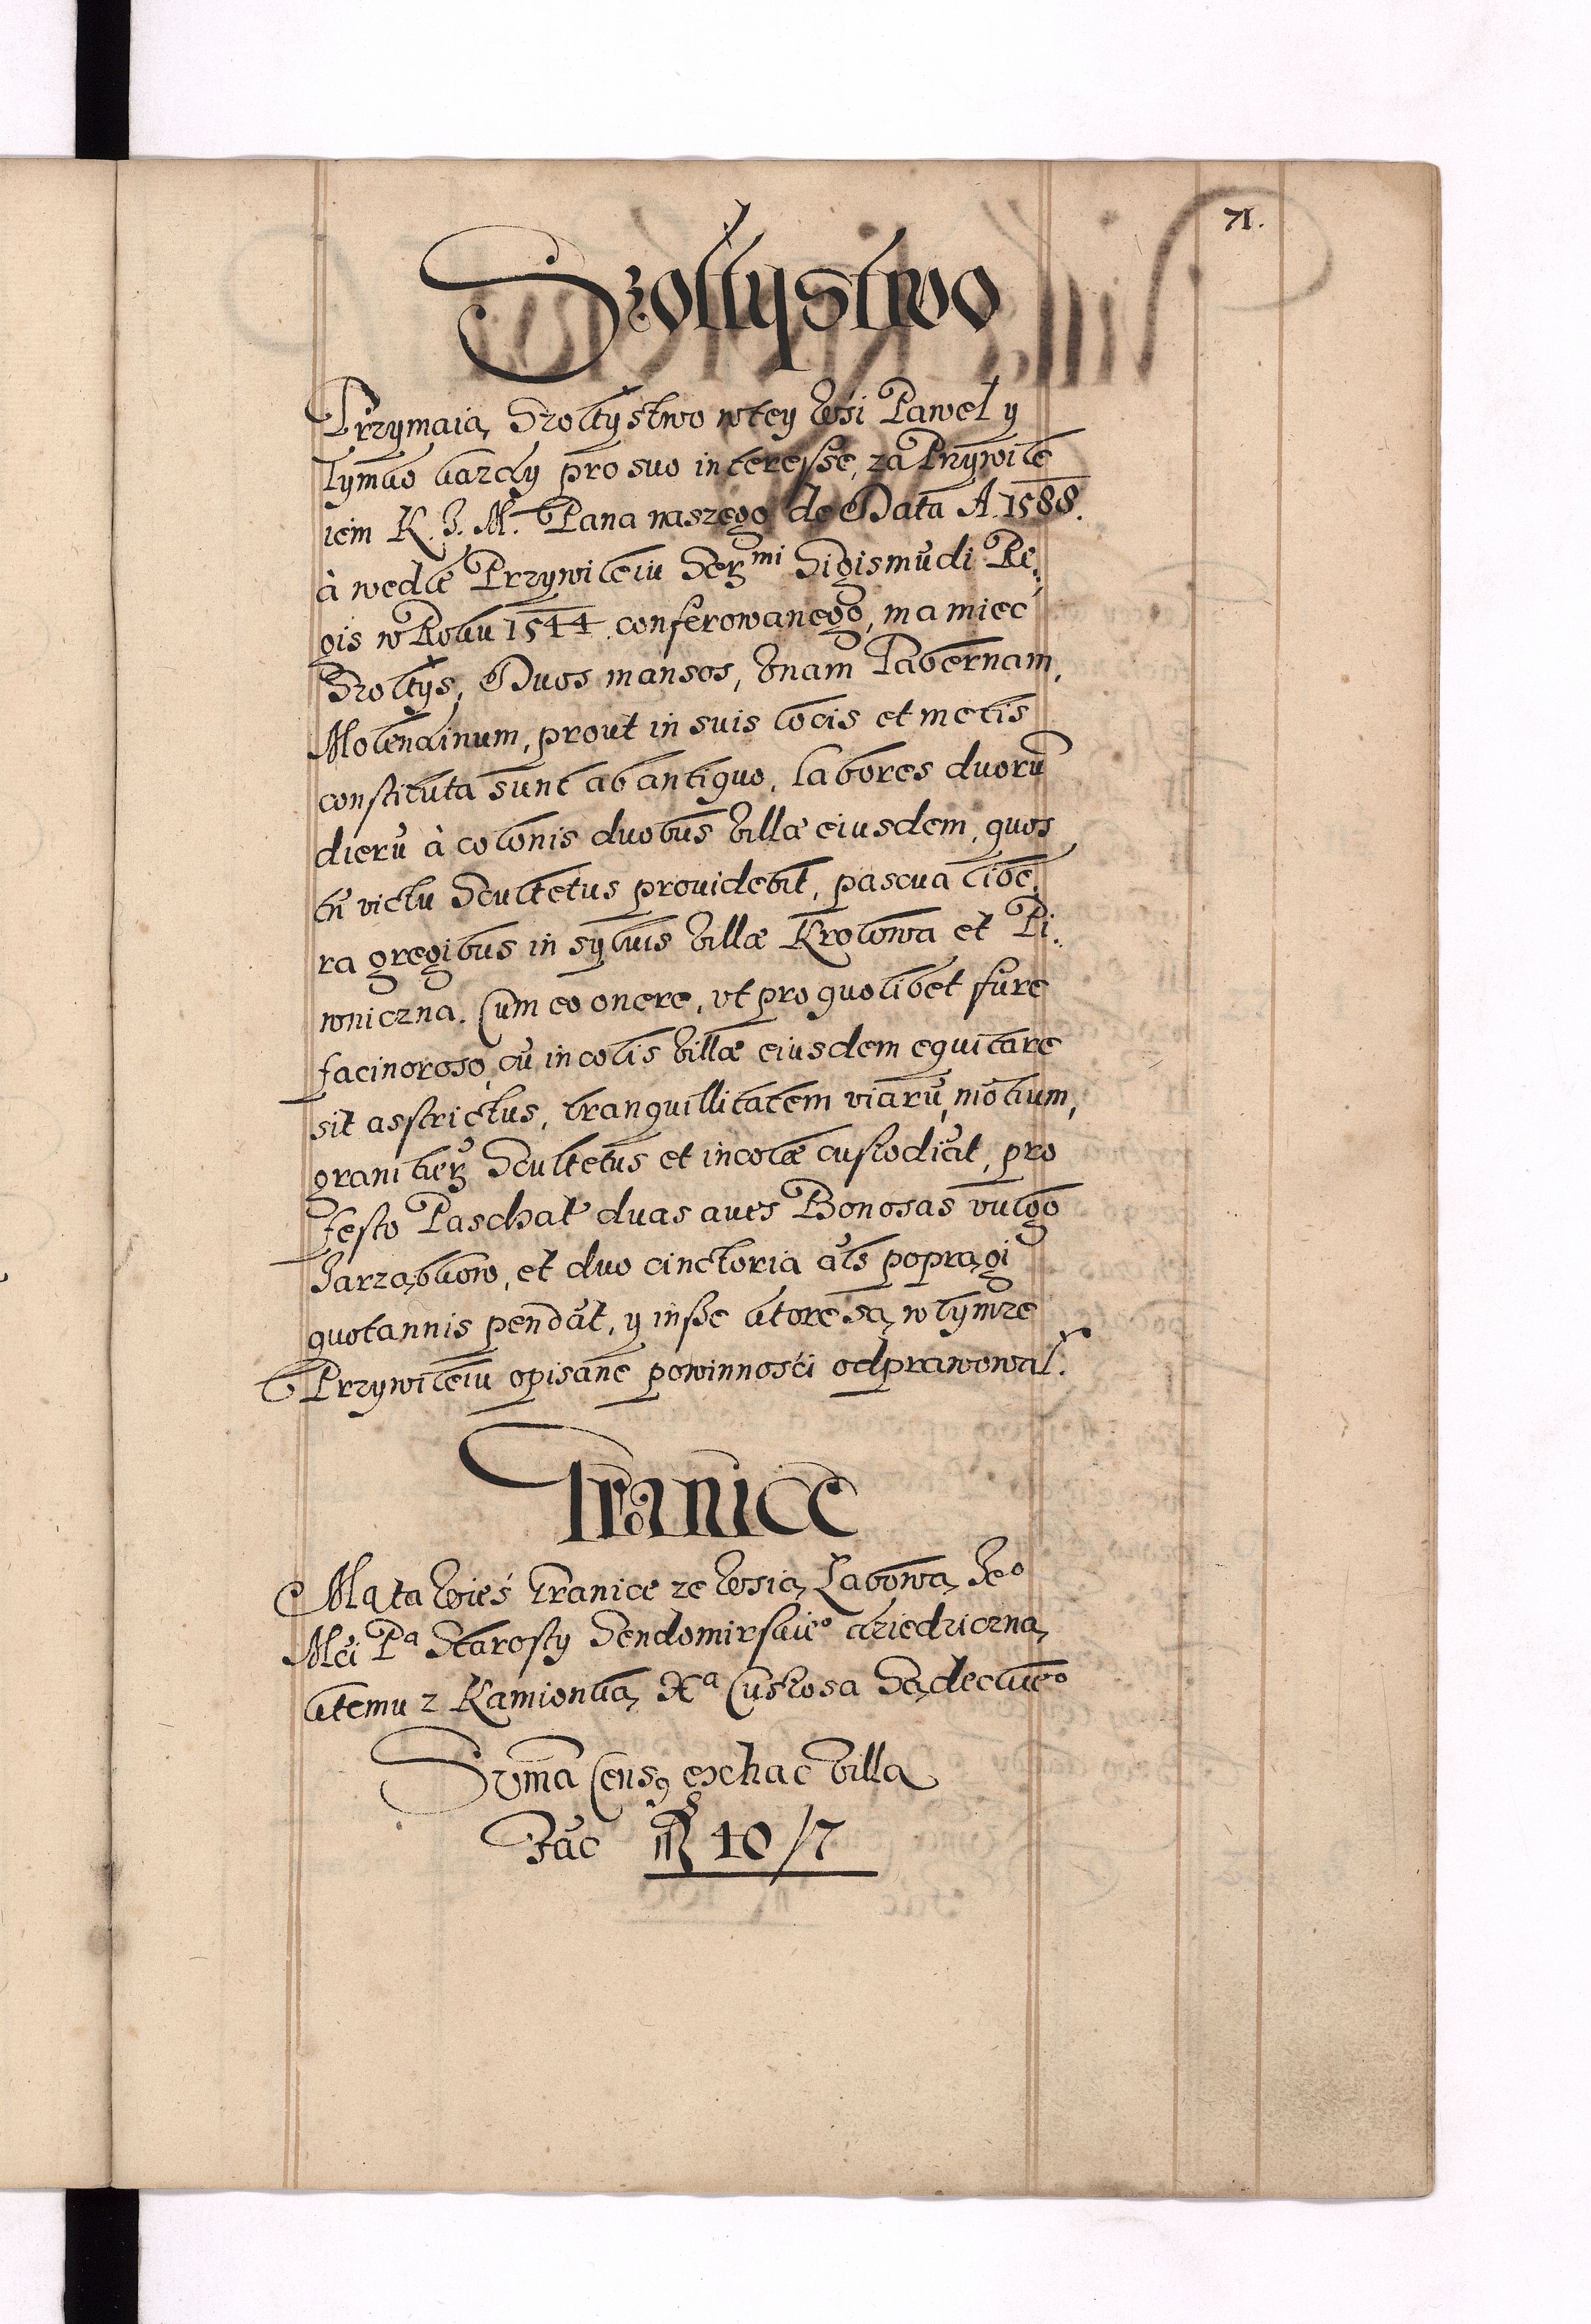 71.
Szołtystwo
Trzymaią Szołtystwo w tey Wsi Paweł y
Tymko kazdy pro suo interesse, za Przywile
iem K. J. M. Pana naszego de Data A. 1588.
à wedle Przywileiu Sermi Sigismūdi Re:
gis w Roku 1544 conferowanego, ma mieć
Szołtys, Duos mansos, Vnam Tabernam,
Molendinum, prout in suis locis et metis
constituta sunt ab antiquo, labores duorū
dierū à colonis duobus Villæ eiusdem, quos
in victu Scultetus prouidebit, pascua libe:
ra gregibus in syluis Villæ Krolowa et Pi:
wniczna. Cum eo onere, vt pro quolibet fure
facinoroso, cū incolis Villæ eiusdem equitare
sit asstrictus, tranquillitatem viarū, mōtium,
granitierū Scultetus et incolæ custodiāt, pro
festo Paschat duas aues Bonosas vulgo
Jarząbkow, et duo cinctoria als poprągi
quotannis pendāt, y insze ktore są w tymze
Przywileiu opisane powinnosći odprawował.
Granice
Ma ta Wieś Granice ze Wsią Łabową Jeo
Mći Pa Starosty Sendomirskieo dziedziczną
ktemu z Kamionką Xa Custosa Sądeckieo
Suma̅ Censq ex hac Villa
Fac 40/7